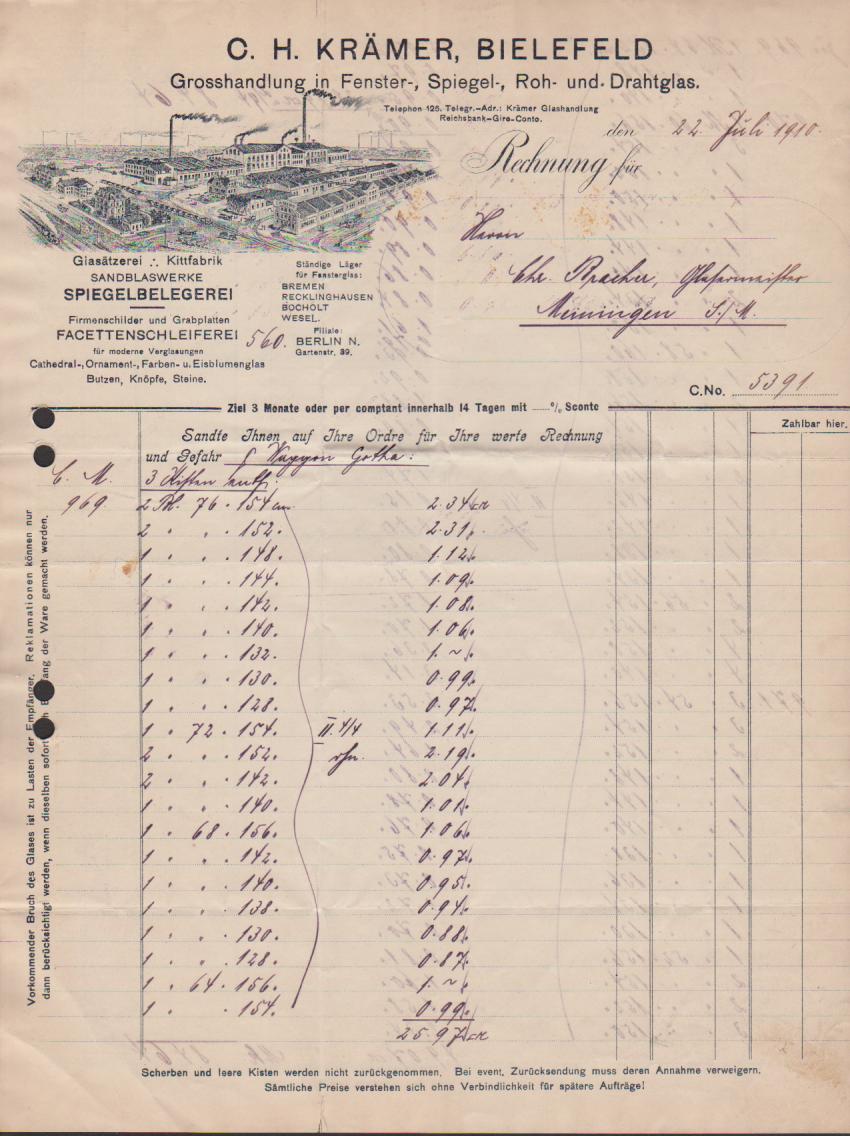 C. H. KRÄMER, BIELEFELD
Grosshandlung in Fenster-, Spiegel-, Roh- und Drahtglas.
Telephon 125. Telegr.-Adr.: Krämer Glashandlung
Reichsbank-Giro-Conto.
den 22. Juli 1910.
Rechnung für
Herrn
Chr. Glasermeister
Meiningen S./M.
Glasätzerei ∴ Kittfabrik
SANDBLASWERKE
SPIEGELBELEGEREI
Firmenschilder und Grabplatten
FACETTENSCHLEIFEREI
für moderne Verglasungen
Cathedral-, Ornament-, Farben- u. Eisblumenglas
Butzen, Knöpfe, Steine.
Ständige Läger
für Fensterglas:
BREMEN
RECKLINGHAUSEN
BOCHOLT
WESEL.
Filiale:
BERLIN N.
Gartenstr. 39.
560.
C.No. 5391
Ziel 3 Monate oder per comptant innerhalb 14 Tagen mit % Sconto
Zahlbar hier.
Sandte Ihnen auf Ihre Ordre für Ihre werte Rechnung
und Gefahr Waggon Gotha:
C. M. 3 Kisten enth:
969. 2 76 · 154 cm 2.34
2 " " · 152. 2.31
1 " " · 148. 1.12
1 " " · 144. 1.09
1 " " · 142. 1.08
1 " " · 140. 1.06
1 " " · 132. 1. ~
1 " " · 130. 0.99
1 " " · 128. 0.97
1 " 72 · 154. II. 4/4 1.11
2 " " · 152. rhn. 2.19
2 " " · 142. 2.04
1 " " · 140. 1.01
1 " 68 · 156. 1.06
1 " " · 142. 0.97
1 " " · 140. 0.95
1 " " · 138. 0.94
1 " " · 130. 0.88
1 " " · 128. 0.87
1 " 64 · 156. 1. ~
1 " " · 154. 0.99
25.97
Vorkommender Bruch des Glases ist zu Lasten der Empfänger. Reklamationen können nur
dann berücksichtigt werden, wenn dieselben sofort der Ware gemacht werden.
Scherben und leere Kisten werden nicht zurückgenommen. Bei event. Zurücksendung muss deren Annahme verweigern.
Sämtliche Preise verstehen sich ohne Verbindlichkeit für spätere Aufträge!